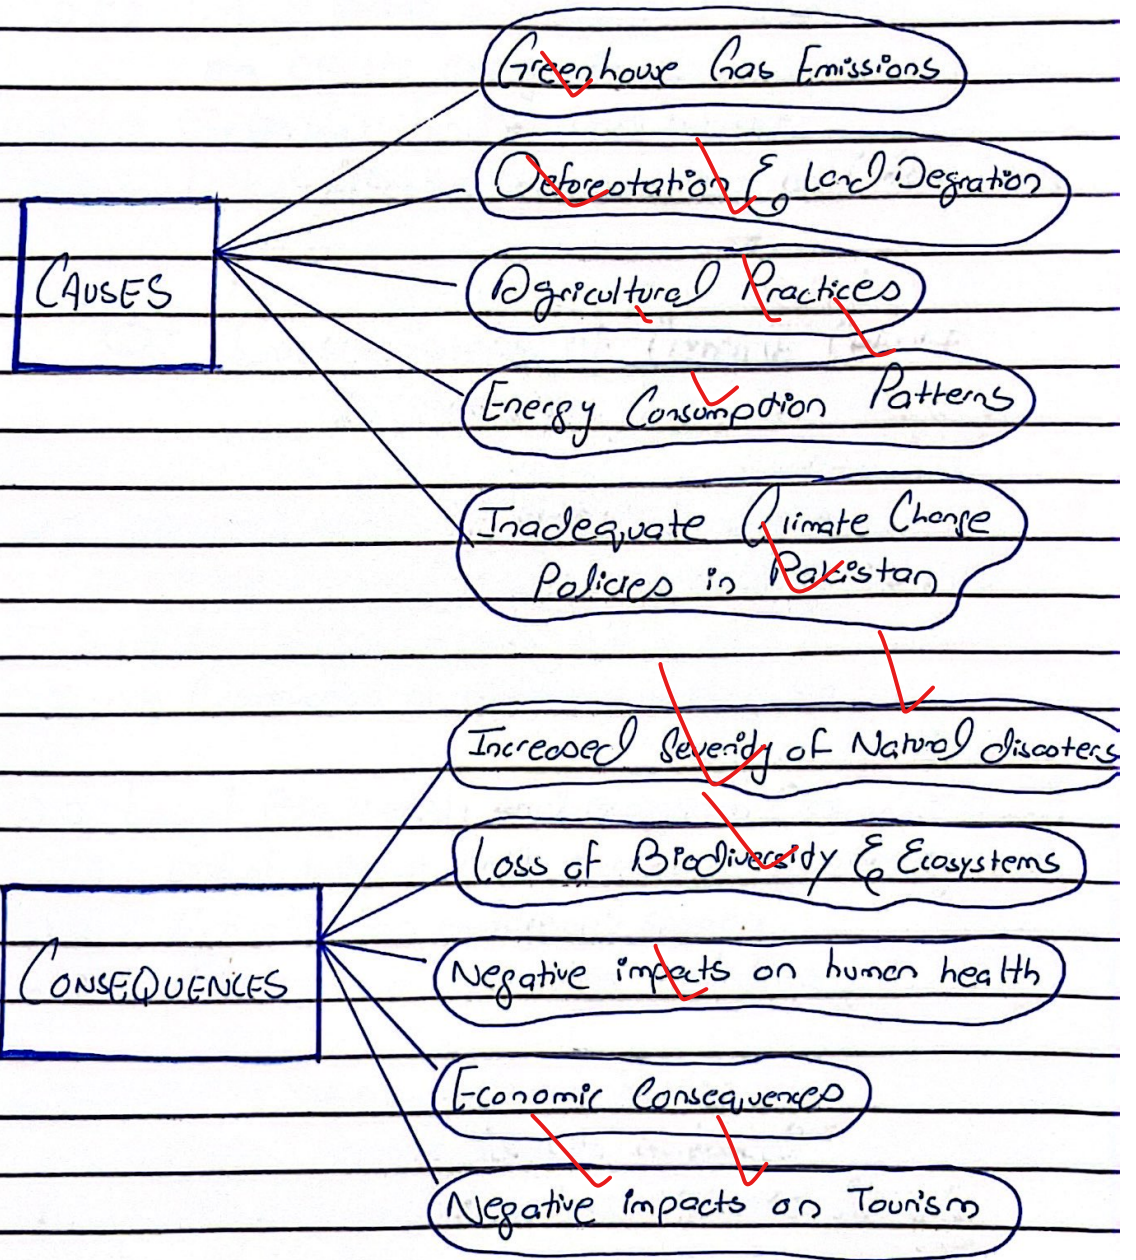 Greenhouse Gas Emissions
Deforestation & Land Degration
CAUSES
Agricultural Practices
Energy Consumption Patterns
Inadequate Climate Change
Policies in Pakistan
Increased Severity of Natural disasters
Loss of Biodiversity & Ecosystems
CONSEQUENCES
Negative impacts on human health
Economic Consequences
Negative impacts on Tourism